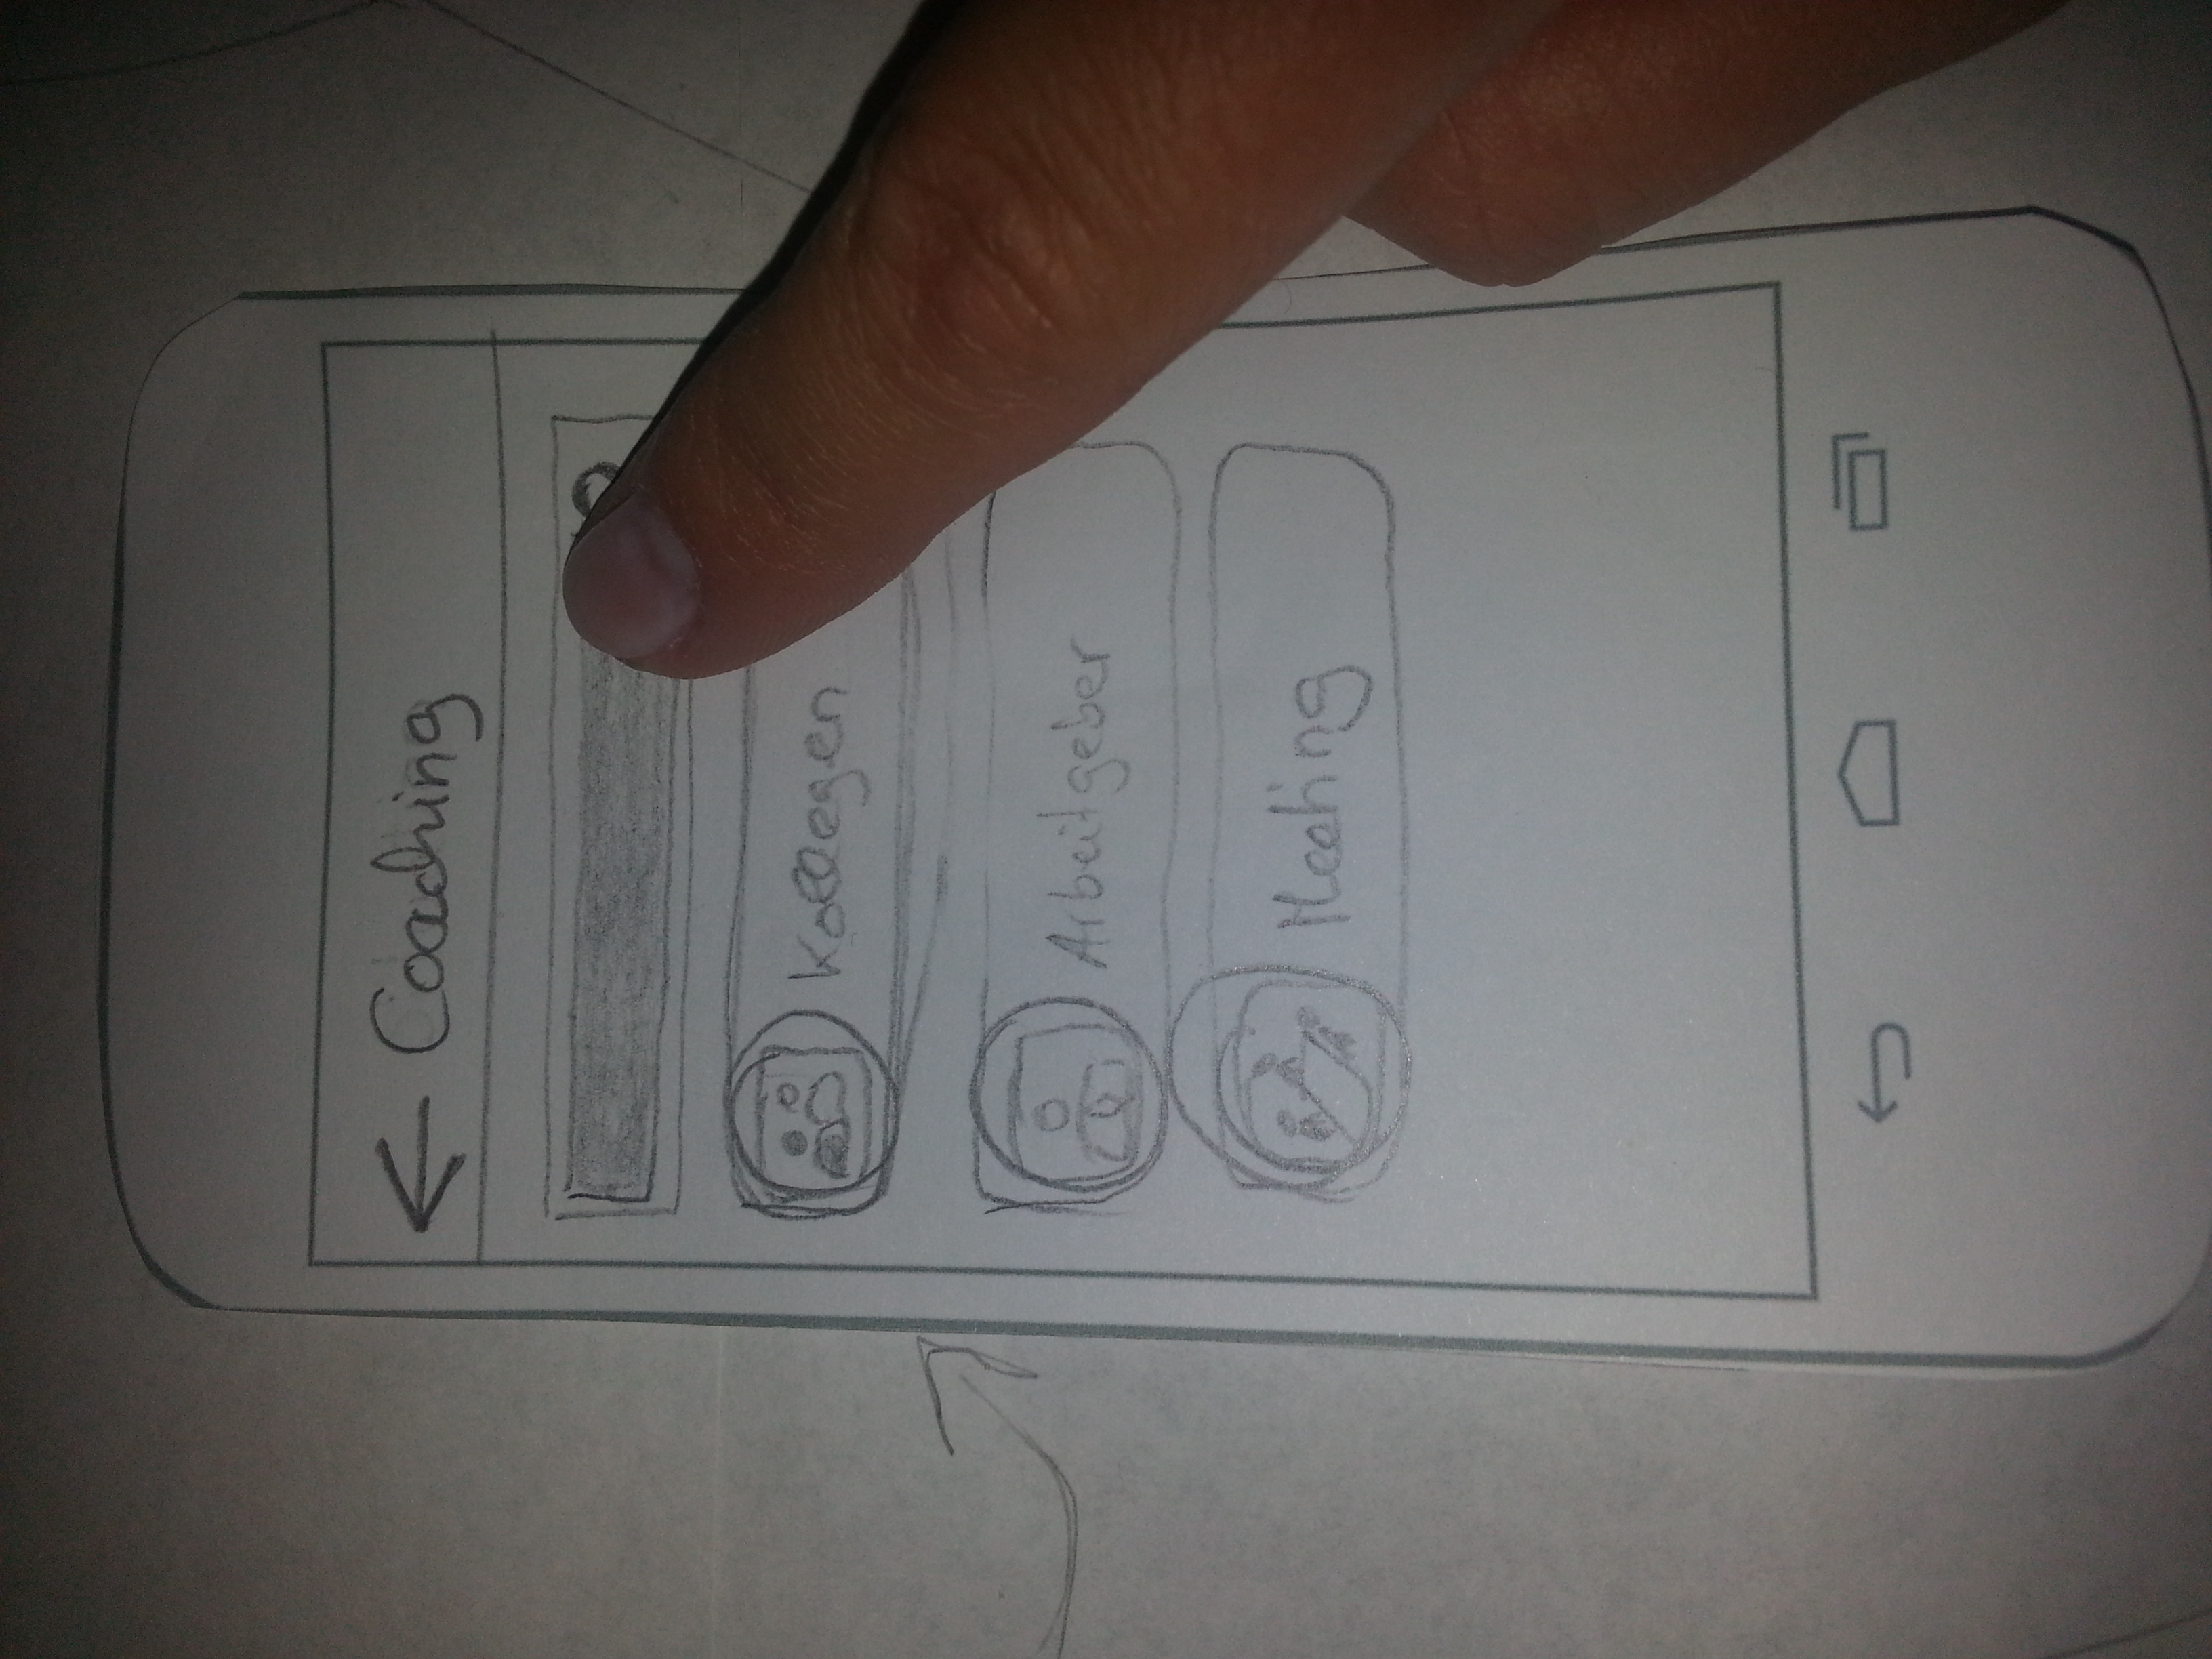 Coaching
Kollegen
Arbeitgeber
Meeting